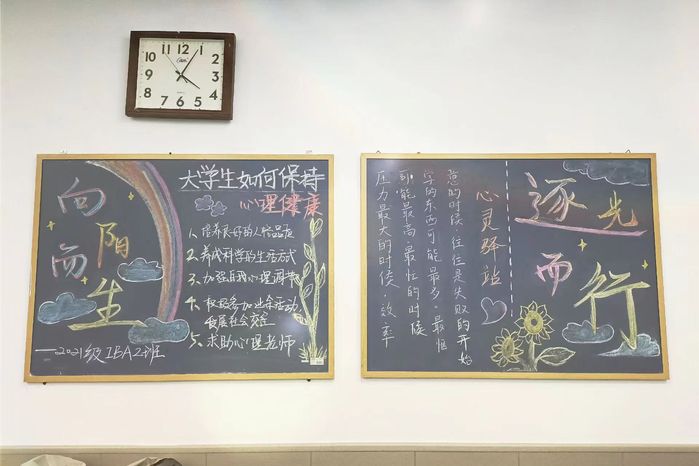 12
1
2
3
4
5
6
7
8
9
10
11
向
阳
而
生
——2021级IBA2班
大学生如何保持
心理健康
1、培养良好的人格品质
2、养成科学的生活方式
3、加强自我心理调节
4、积极参加业余活动,
发展社会交往
5、求助心理老师
心灵驿站
压力最大的时候.效率
可能最高.最忙的时候
学的东西可能最多.最惬
意的时候 往往是失败的开始
逐光
而
行